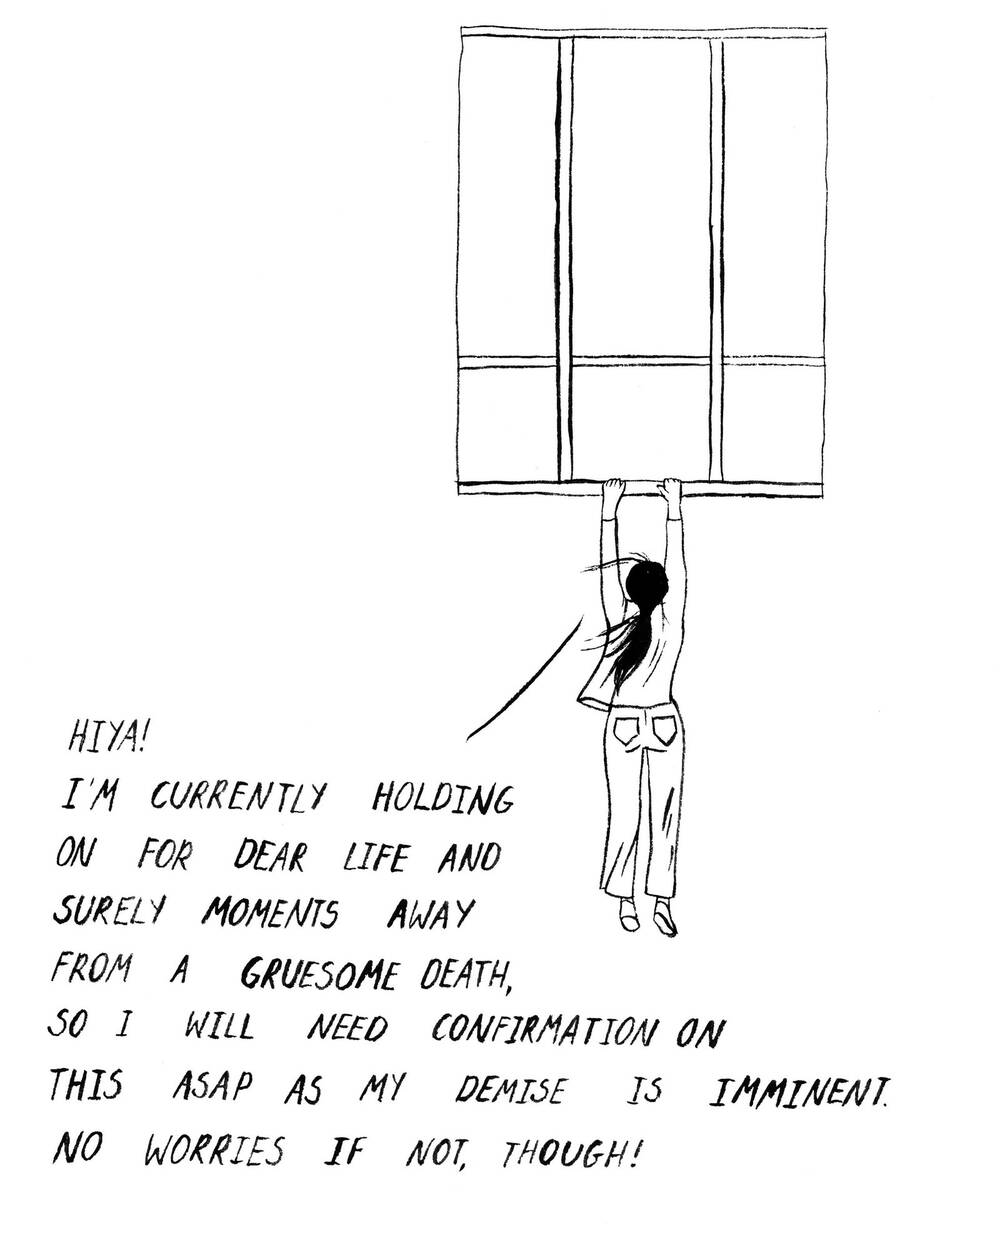 HIYA!
I'M CURRENTLY HOLDING
ON FOR DEAR LIFE AND
SURELY MOMENTS AWAY
FROM A GRUESOME DEATH,
SO I WILL NEED CONFIRMATION ON
THIS ASAP AS MY DEMISE IS IMMINENT.
NO WORRIES IF NOT, THOUGH!